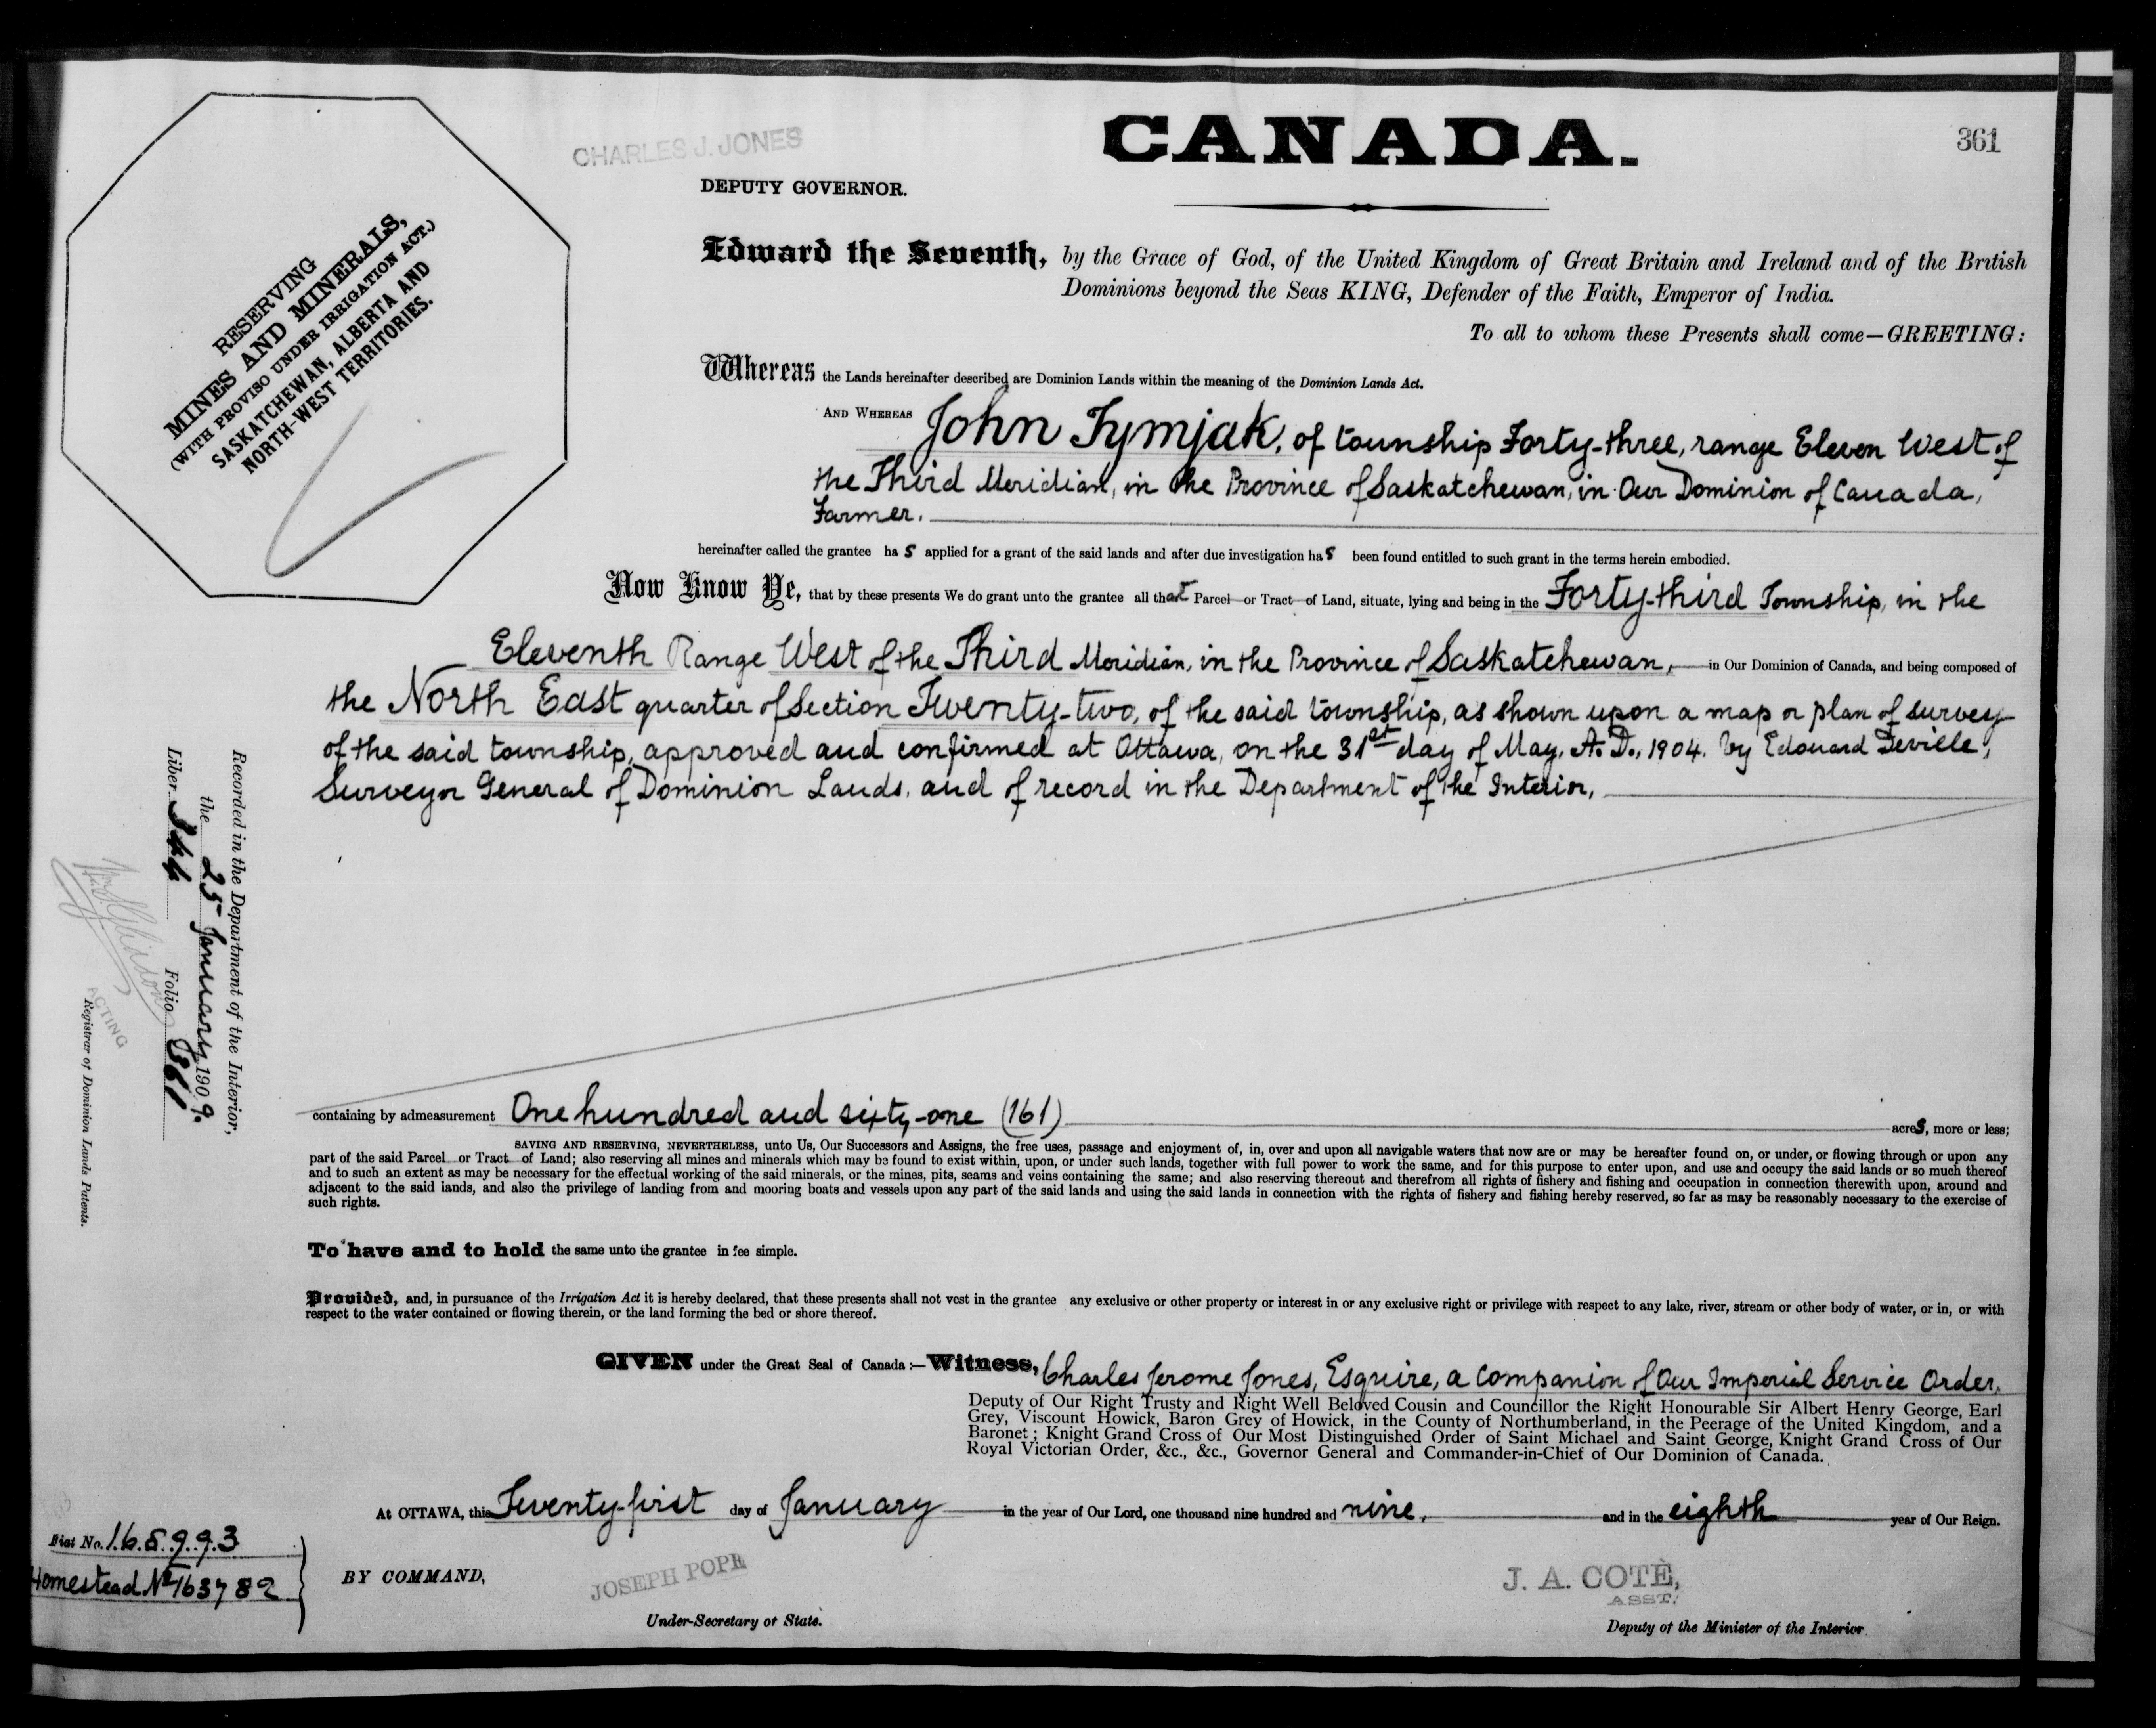 CHARLES J. JONES
CANADA.
361
DEPUTY GOVERNOR.
RESERVING
MINES AND MINERALS,
(WITH PROVISO UNDER IRRIGATION ACT.)
SASKATCHEWAN, ALBERTA AND
NORTH-WEST TERRITORIES.
Edward the Seventh, by the Grace of God, of the United Kingdom of Great Britain and Ireland and of the British
Dominions beyond the Seas KING, Defender of the Faith, Emperor of India.
To all to whom these Presents shall come—GREETING:
Whereas the Lands hereinafter described are Dominion Lands within the meaning of the Dominion Lands Act.
AND WHEREAS John Tymjak, of township Forty-three, range Eleven West of
the Third Meridian, in the Province of Saskatchewan, in Our Dominion of Canada,
Farmer.
hereinafter called the grantee has applied for a grant of the said lands and after due investigation has been found entitled to such grant in the terms herein embodied.
Now Know Ye, that by these presents We do grant unto the grantee all that Parcel or Tract of Land, situate, lying and being in the Forty-third Township, in the
Eleventh Range West of the Third Meridian, in the Province of Saskatchewan, in Our Dominion of Canada, and being composed of
the North East quarter of Section Twenty-two, of the said township, as shown upon a map or plan of survey
of the said township, approved and confirmed at Ottawa, on the 31st day of May, A. D., 1904. by Edouard Deville,
Surveyor General of Dominion Lands, and of record in the Department of the Interior,
containing by admeasurement One hundred and sixty-one (161) acres, more or less;
SAVING AND RESERVING, NEVERTHELESS, unto Us, Our Successors and Assigns, the free uses, passage and enjoyment of, in, over and upon all navigable waters that now are or may be hereafter found on, or under, or flowing through or upon any
part of the said Parcel or Tract of Land; also reserving all mines and minerals which may be found to exist within, upon, or under such lands, together with full power to work the same, and for this purpose to enter upon, and use and occupy the said lands or so much thereof
and to such an extent as may be necessary for the effectual working of the said minerals, or the mines, pits, seams and veins containing the same; and also reserving thereout and therefrom all rights of fishery and fishing and occupation in connection therewith upon, around and
adjacent to the said lands, and also the privilege of landing from and mooring boats and vessels upon any part of the said lands and using the said lands in connection with the rights of fishery and fishing hereby reserved, so far as may be reasonably necessary to the exercise of
such rights.
To have and to hold the same unto the grantee in fee simple.
Provided, and, in pursuance of the Irrigation Act it is hereby declared, that these presents shall not vest in the grantee any exclusive or other property or interest in or any exclusive right or privilege with respect to any lake, river, stream or other body of water, or in, or with
respect to the water contained or flowing therein, or the land forming the bed or shore thereof.
GIVEN under the Great Seal of Canada:—Witness, Charles Jerome Jones, Esquire, a Companion of Our Imperial Service Order,
Deputy of Our Right Trusty and Right Well Beloved Cousin and Councillor the Right Honourable Sir Albert Henry George, Earl
Grey, Viscount Howick, Baron Grey of Howick, in the County of Northumberland, in the Peerage of the United Kingdom, and a
Baronet; Knight Grand Cross of Our Most Distinguished Order of Saint Michael and Saint George, Knight Grand Cross of Our
Royal Victorian Order, &c., &c., Governor General and Commander-in-Chief of Our Dominion of Canada.
At OTTAWA, this Twenty-first day of January in the year of Our Lord, one thousand nine hundred and nine, and in the eighth year of Our Reign.
BY COMMAND,
JOSEPH POPE
Under-Secretary of State.
J. A. COTÈ,
ASST.
Deputy of the Minister of the Interior
Fiat No. 165993
Homestead No 163782
Recorded in the Department of the Interior,
the 25 January 1909.
Liber 344 Folio 361
ACTING
Registrar of Dominion Lands Patents.